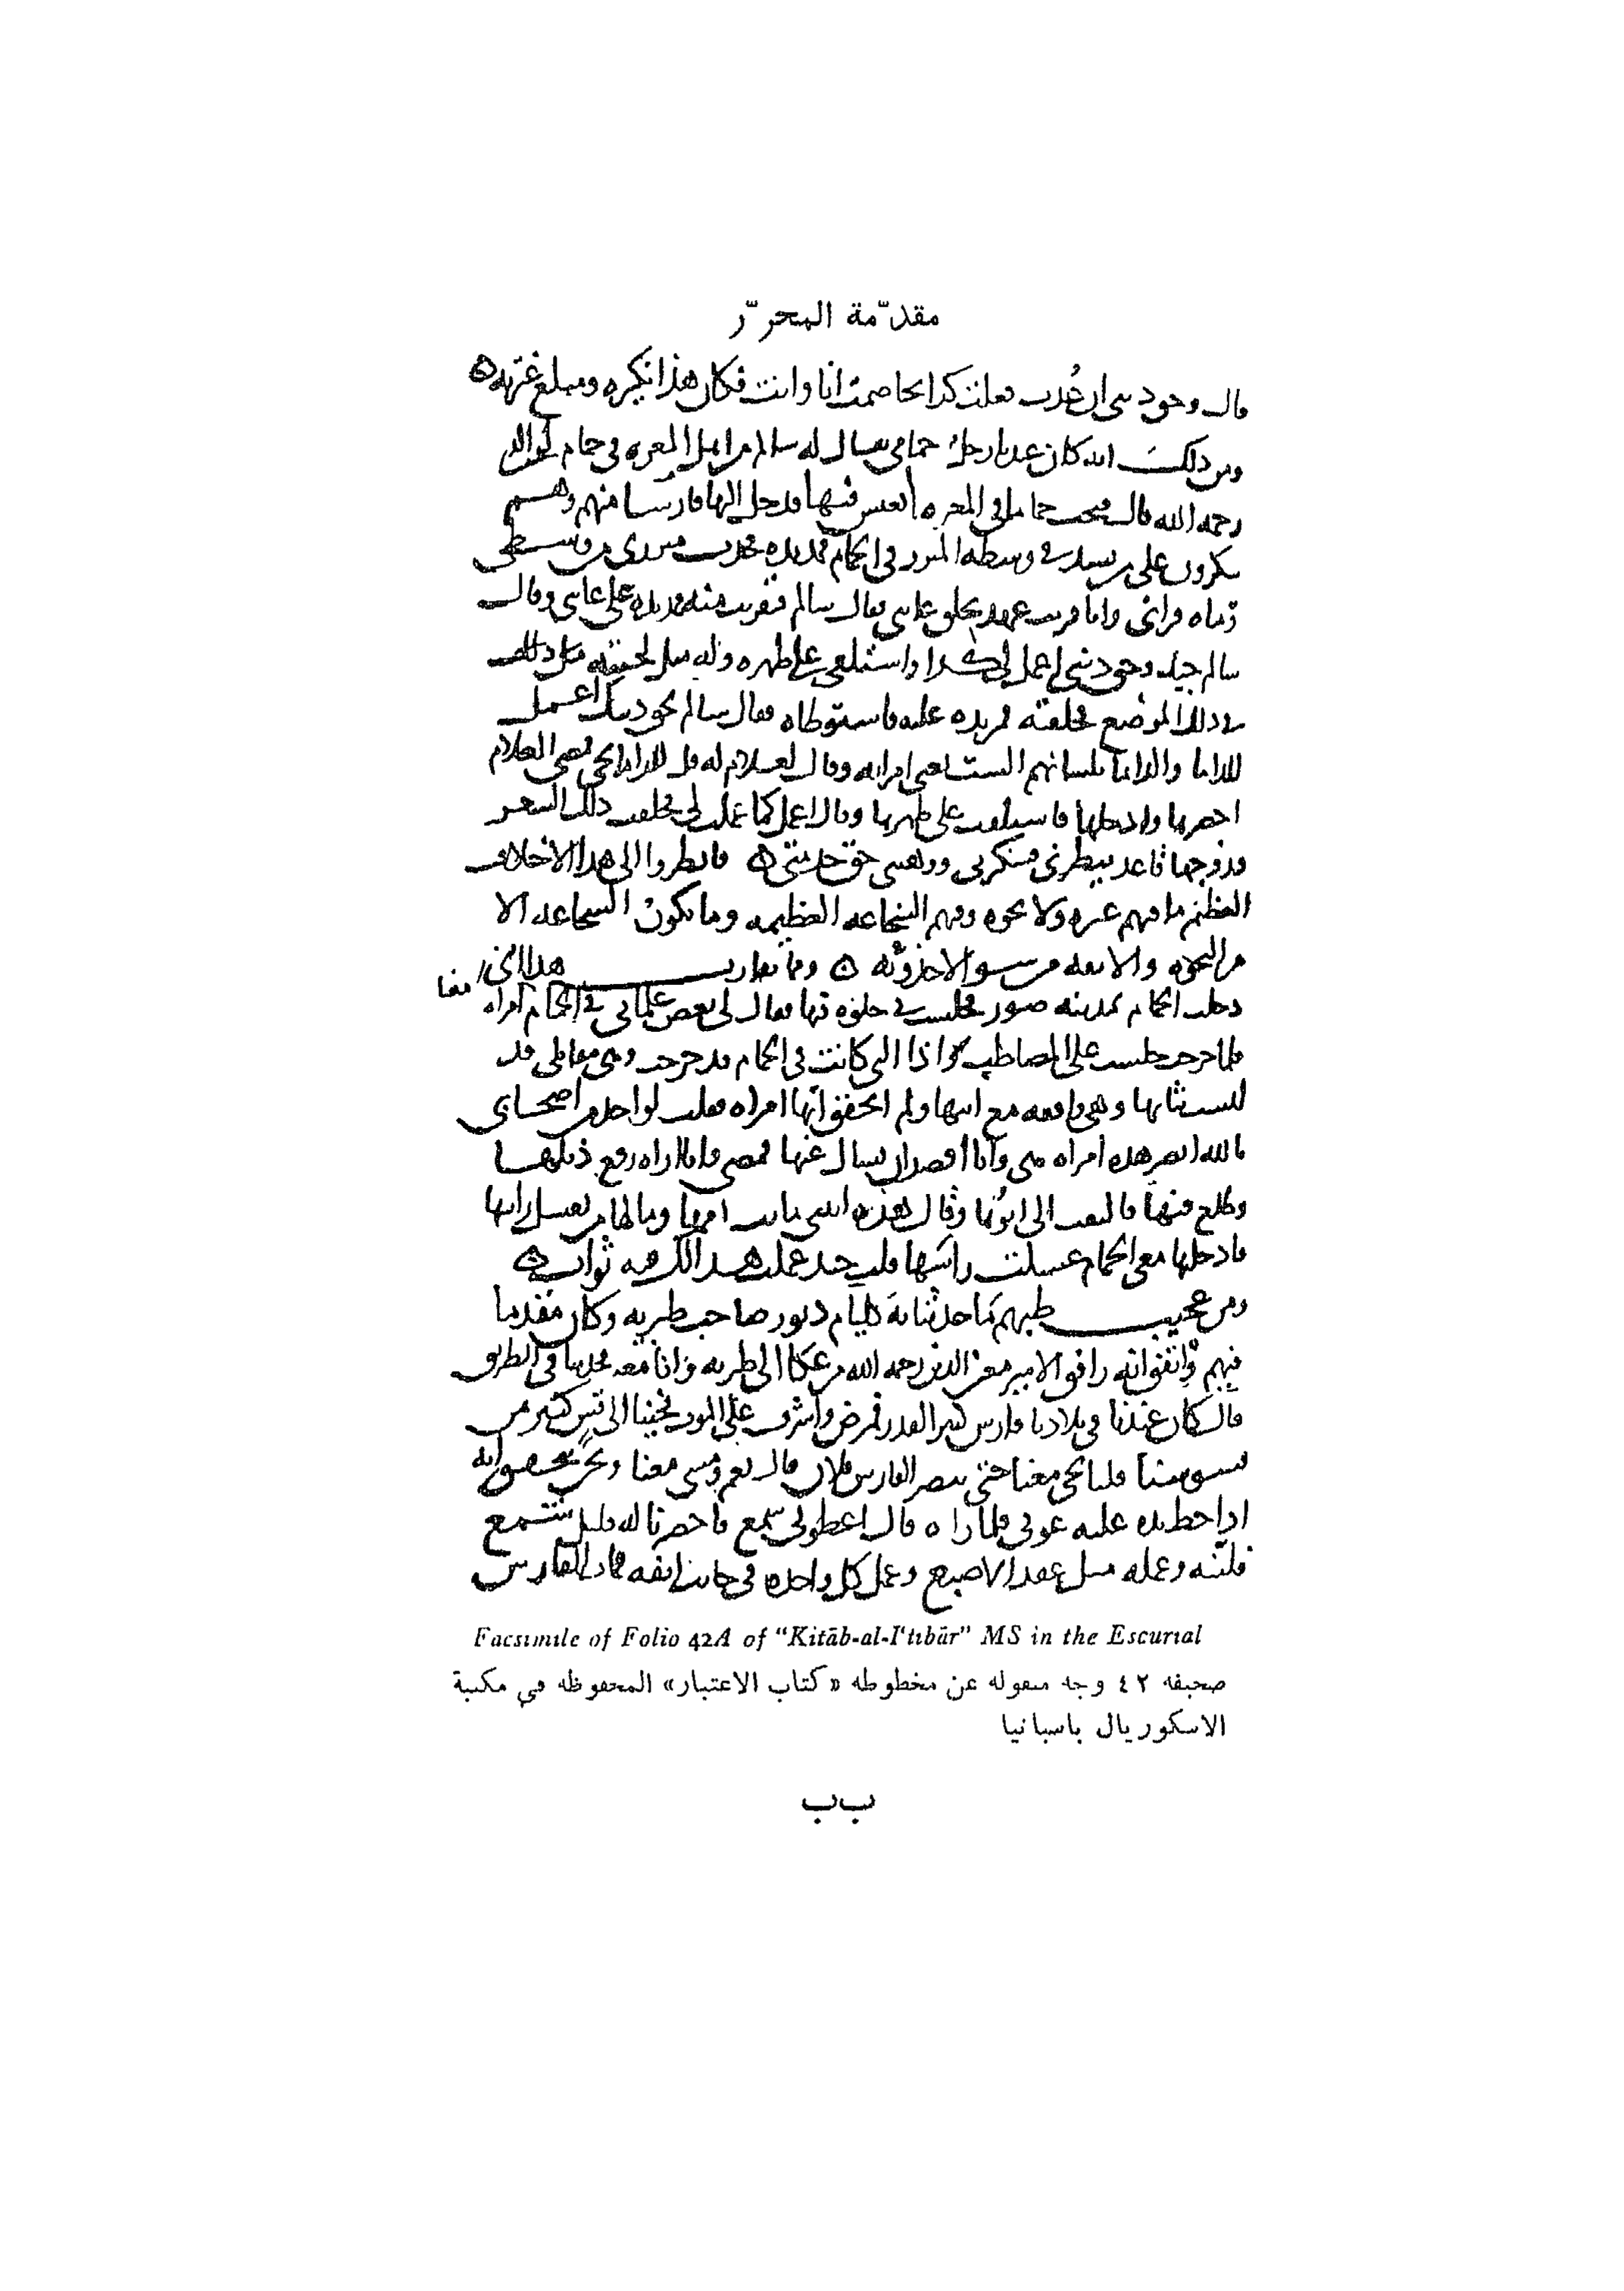 مقدّمة المحرّر
قال وحق ديني ان عُدت فعلت كدا تخاصمت انا وانت فكان هذا نكيره ومبلغ غيرته
ومن ذلك انه كان عندنا رجل حمامي يقال له سالم من اهل المعره في حمام لوالدي
رحمه الله قال فتحت حماما في المعره اتعيش فيها فدخل اليها فارس منهم وهم
ينكرون على من يشد في وسطه الميزر في الحمام فمد يده فجدب ميزري من وسطي
رماه فراني وانا قريب عهد بحلق عانتي فقال سالم فتقربت منه فمد يده على عانتي وقال
سالم جيد وحق ديني اعمل لي كدا واستلقى على ظهره وله مثل لحيته
في ذلك الموضع فحلقته فمر يده عليه فاستوطاه فقال سالم بحق دينك اعمل
للداما والداما بلسانهم الست يعني امراته وقال لغلام له قل للداما تجي فمضى الغلام
احضرها وادخلها فاستلقت على ظهرها وقال اعمل كما عملت لي فحلقت ذلك الشعر
وزوجها قاعد ينظرني فشكرني ووهبني حق خدمتي فانظروا الى هدا الاختلاف
العظيم ما فيهم غيره ولا نخوه وفيهم الشجاعه العظيمه وما تكون الشجاعه الا
من النخوه والانفه من سو الاحدوثه ومما يقارب هدا انني
دخلت الحمام بمدينه صور فجلست في خلوه فيها فقال لي بعض غلماني في الحمام معنا امراه
فلما خرجت جلست على المصاطب واذا التي كانت في الحمام قد خرجت وهي مقابلي قد
لبست ثيابها وهي واقفه مع ابيها ولم اتحقق انها امراه فقلت لواحد من اصحابي
بالله ابصر هذه امراه هي وانا اقصد ان يسال عنها فمضى وانا اراه رفع ذيلها
وطلع فيها فالتفت الي ابوها وقال هذه ابنتي ماتت امها وما لها من يغسل راسها
فادخلتها معي الحمام غسلت راسها قلت جيد عملت هدا لك فيه ثواب
ومن عجيب طبهم ما حدثنا به كليام دبور صاحب طبريه وكان مقدما
فيهم واتفق انه رافق الامير معين الدين رحمه الله من عكا الى طبريه وانا معه فحدثنا في الطريق
قال كان عندنا في بلادنا فارس كبير القدر فمرض واشرف على الموت فجينا الى قس كبير من
قسوسنا قلنا تجي معنا حتى تبصر الفارس فلان قال نعم ومشى معنا ونحن نتحقق انه
اذا حط يده عليه عوفي فلما راه قال اعطوني شمع فاحضرنا له قليل شمع
فلينه وعمله مثل عقد الاصبع وعمل كل واحده في جانب انفه فمات الفارس
Facsimile of Folio 42A of "Kitāb-al-I'tibār" MS in the Escurial
صحيفة ٤٢ وجه منقولة عن مخطوطة «كتاب الاعتبار» المحفوظة في مكتبة
الاسكوريال باسبانيا
ب‌ب